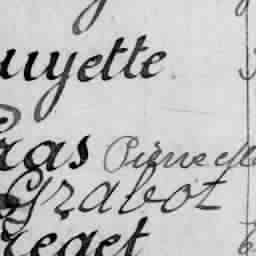 uyette
ras Pierre
Grabot
reget